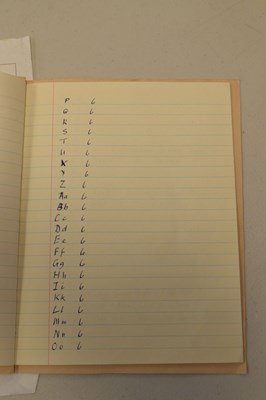 P 6
Q 6
R 6
S 6
T 6
U 6
X 6
Y 6
Z 6
Aa 6
Bb 6
Cc 6
Dd 6
Ee 6
Ff 6
Gg 6
Hh 6
Ii 6
Kk 6
Ll 6
Mm 6
Nn 6
Oo 6